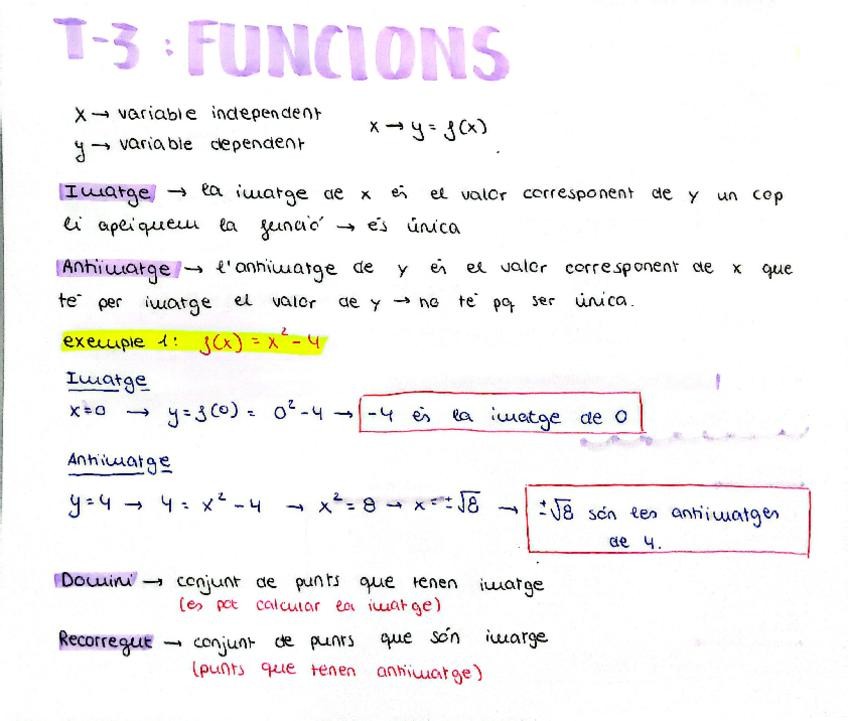 T-3 : FUNCIONS
x → variable independent
x → y = f(x)
y → variable dependent
Imatge → la imatge de x és el valor corresponent de y un cop
li apliquem la funció → és única
Antiimatge → l'antiimatge de y és el valor corresponent de x que
té per imatge el valor de y → no té pq ser única.
exemple 1: f(x) = x² - 4
Imatge
x=0 → y = f(0) = 0² - 4 → -4 és la imatge de 0
Antiimatge
y = 4 → 4 = x² - 4 → x² = 8 → x = ±√8 → ±√8 són les antiimatges
de 4.
Domini → conjunt de punts que tenen imatge
(es pot calcular la imatge)
Recorregut → conjunt de punts que són imatge
(punts que tenen antiimatge)